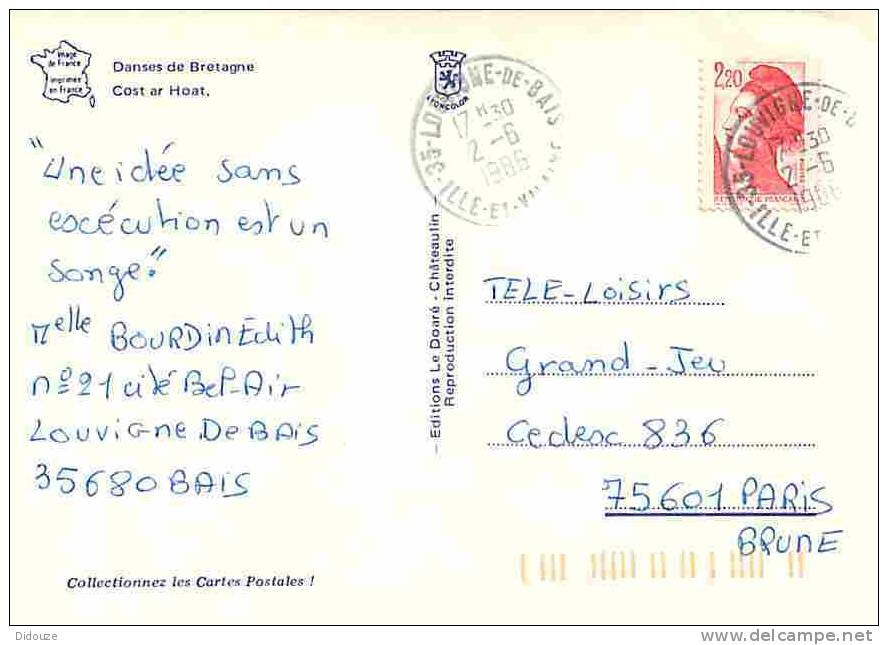 Image
de France
Imprimée
en France
Danses de Bretagne
Cost ar Hoat.
LYONCOLOR
35-LOUVIGNE-DE-BAIS
17 H30
2 -6
1986
ILLE-ET-VILAINE
2,20
REPUBLIQUE FRANCAISE
35-LOUVIGNE-DE-B
H30
2 -6
1986
ILLE-ET
"Une idée sans
escécution est un
songe."
Melle BOURDIN Edith
nº21 cité Bel-Air
LOUVIGNE DE BAIS
35680 BAIS
— Editions Le Doaré - Châteaulin —
Reproduction interdite
TELE-LOISIRS
Grand-Jeu
Cedesc 836
75601 PARIS
BRUNE
Collectionnez les Cartes Postales !
Didouze
www.delcampe.net